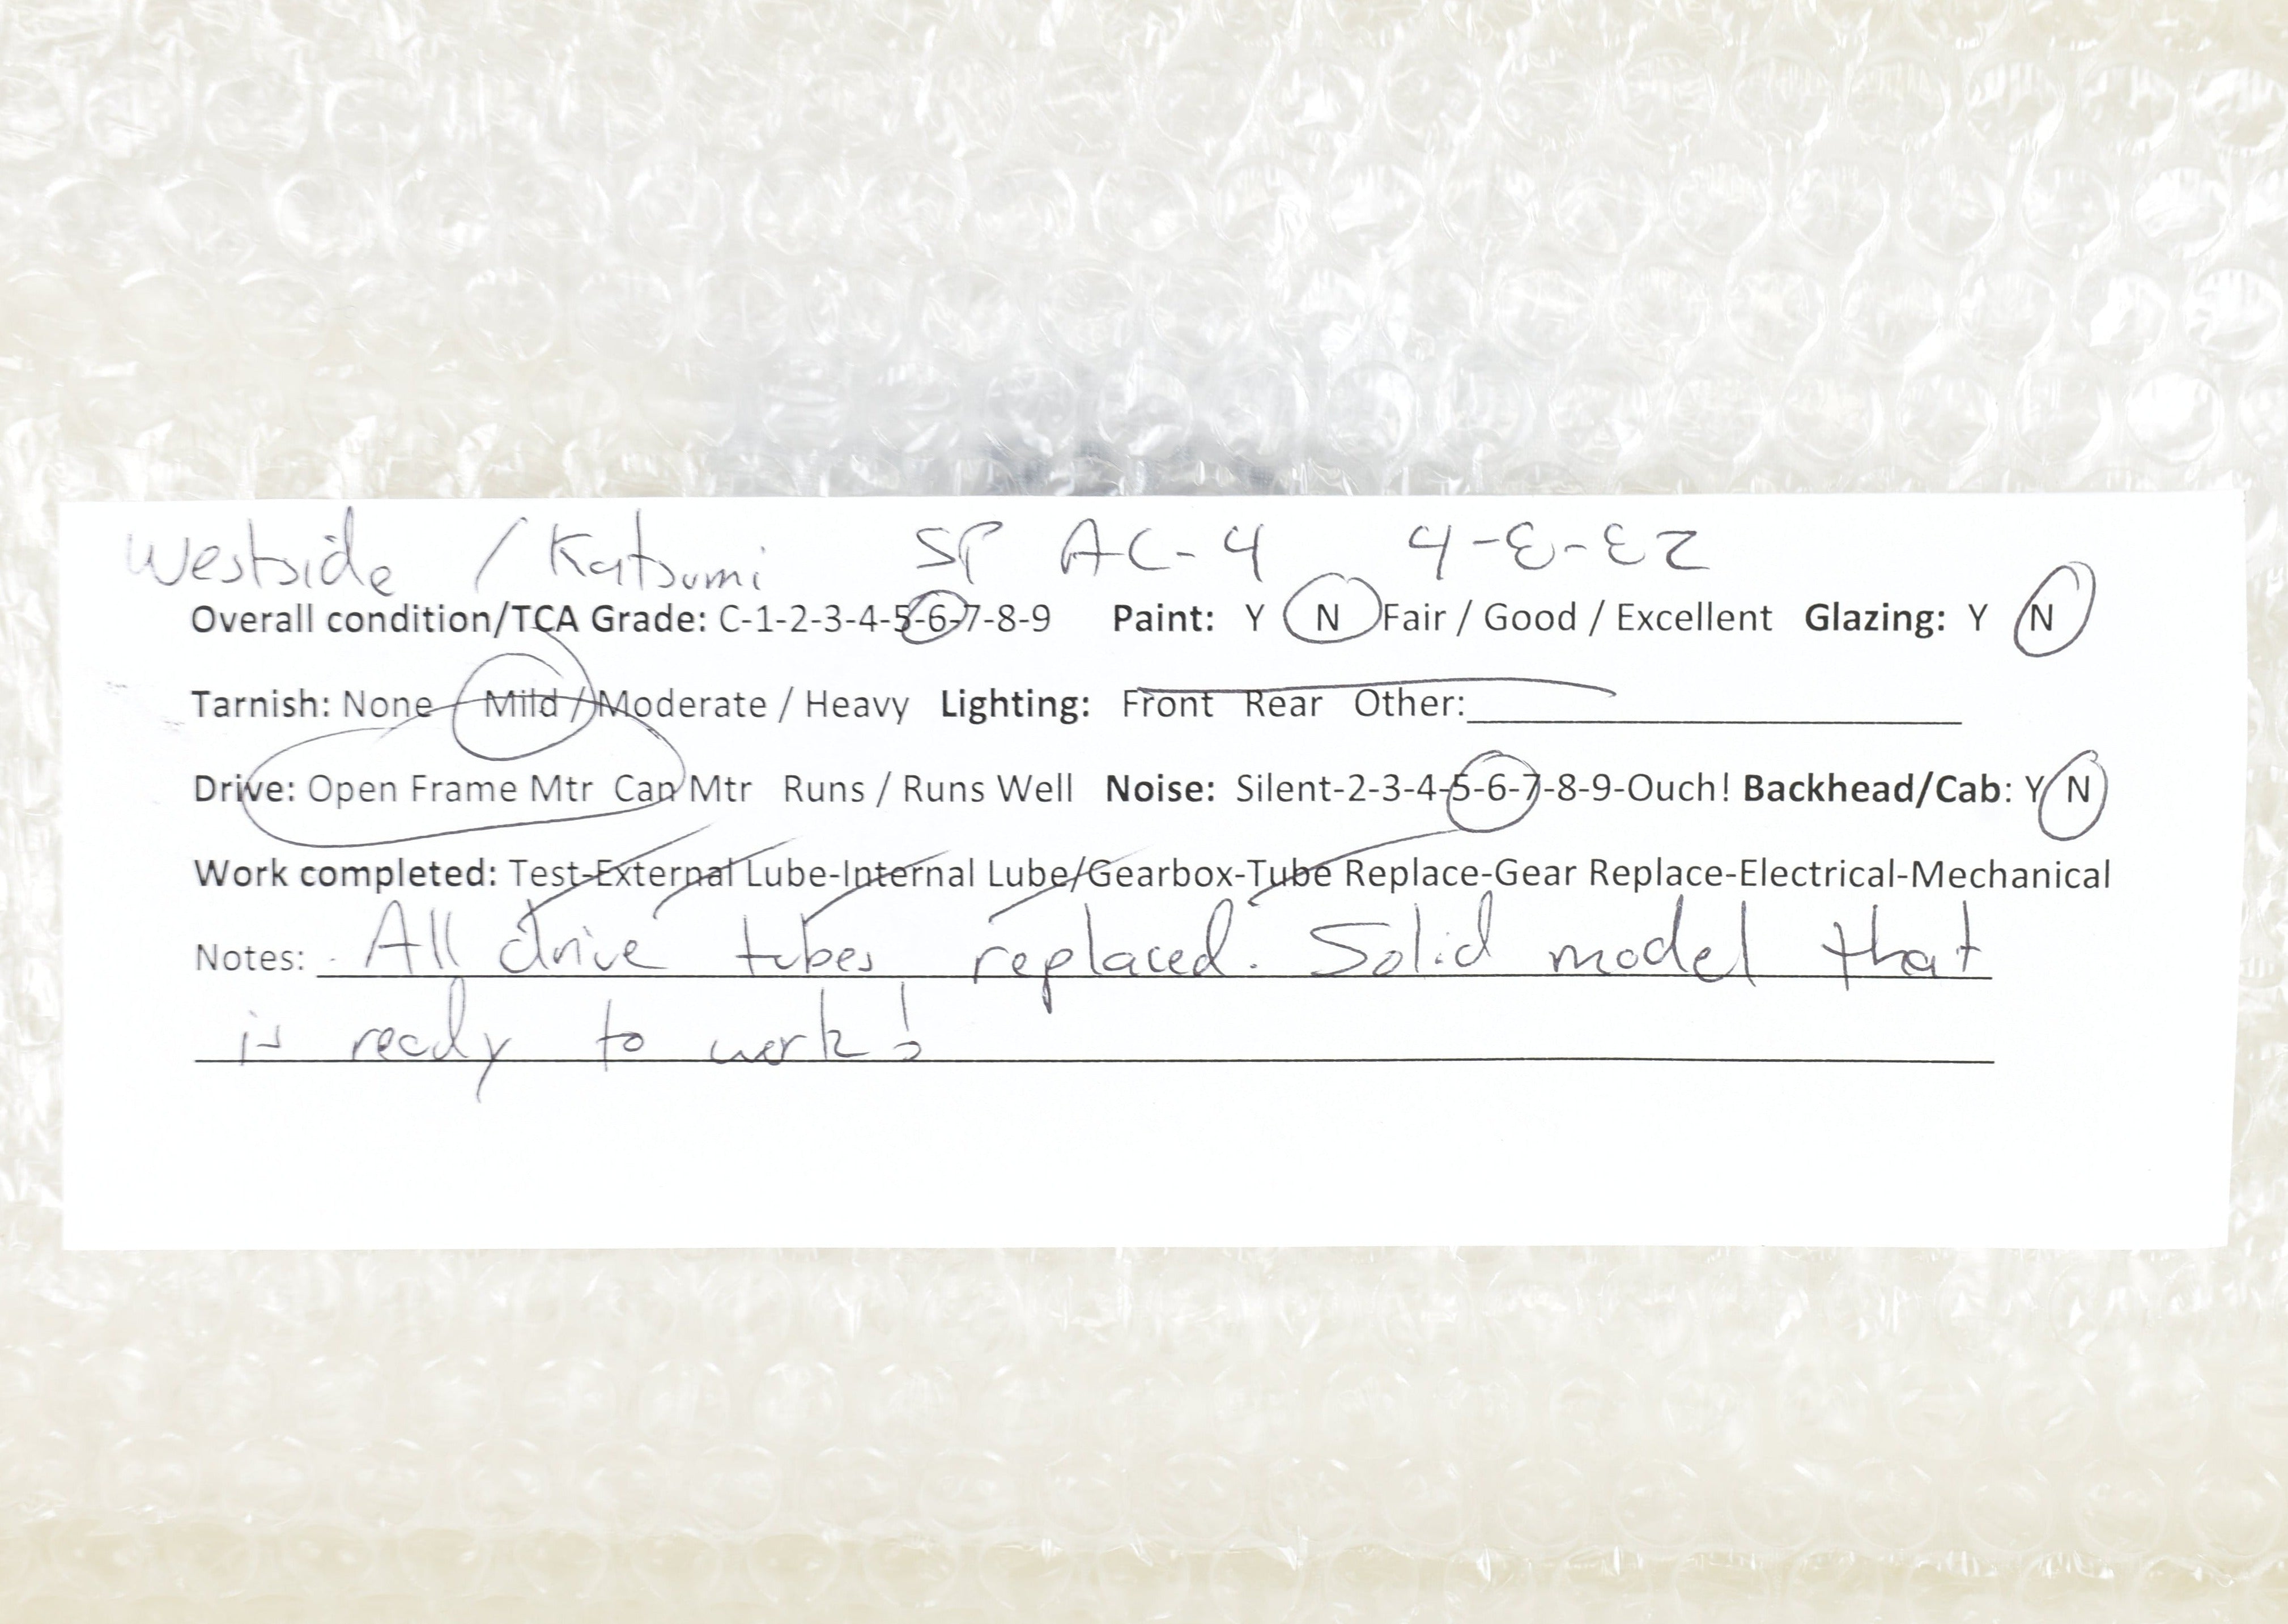 Westside / Katsumi SP AC-4 4-8-82
Overall condition/TCA Grade: C-1-2-3-4-5-6-7-8-9 Paint: Y N Fair / Good / Excellent Glazing: Y N
Tarnish: None / Mild / Moderate / Heavy Lighting: Front Rear Other:
Drive: Open Frame Mtr Can Mtr Runs / Runs Well Noise: Silent-2-3-4-5-6-7-8-9-Ouch! Backhead/Cab: Y N
Work completed: Test-External Lube-Internal Lube/Gearbox-Tube Replace-Gear Replace-Electrical-Mechanical
Notes: All drive tubes replaced. Solid model that
is ready to work!